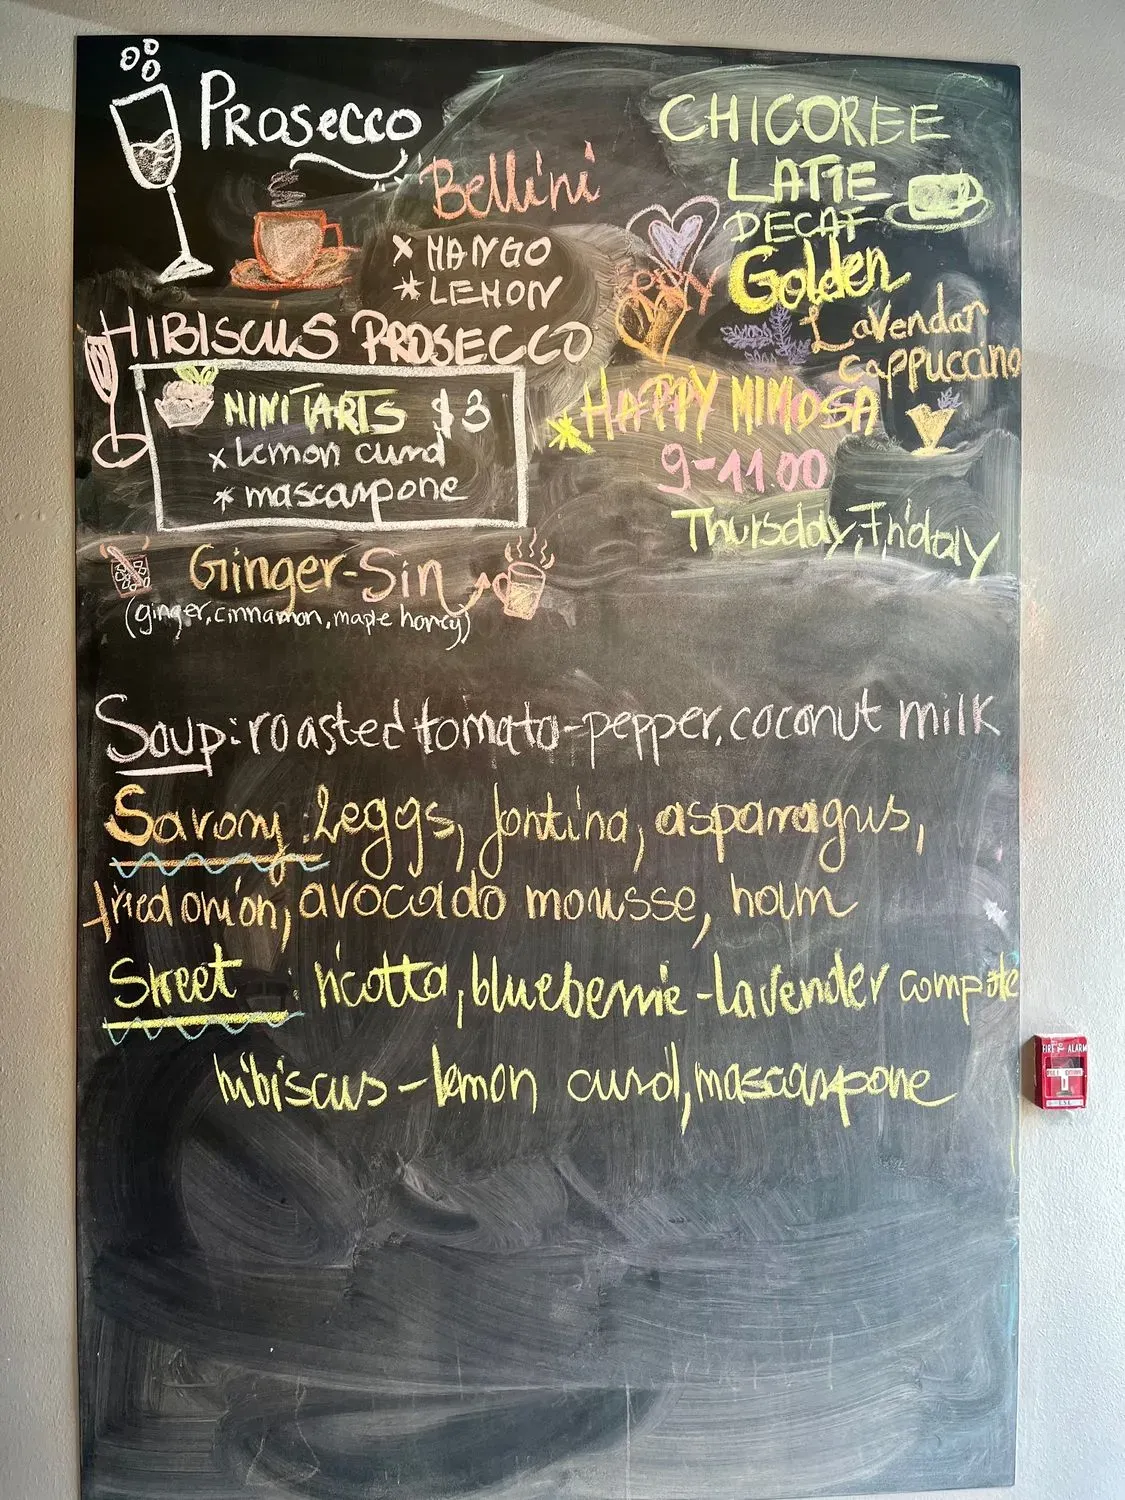 Prosecco
Bellini
x MANGO
* LEMON
HIBISCUS PROSECCO
MINI TARTS $3
x Lemon curd
* mascarpone
Ginger-Sin
(ginger, cinnamon, maple honey)
CHICOREE
LATTE
DECAF
Golden
Lavendar
cappuccino
* HAPPY MIMOSA
9-11.00
Thursday, Friday
Soup: roasted tomato-pepper, coconut milk
Savory: 2eggs, fontina, asparagus,
fried onion, avocado mousse, ham
Sweet : ricotta, blueberrie-lavender compote
hibiscus-lemon curd, mascarpone
FIRE ALARM